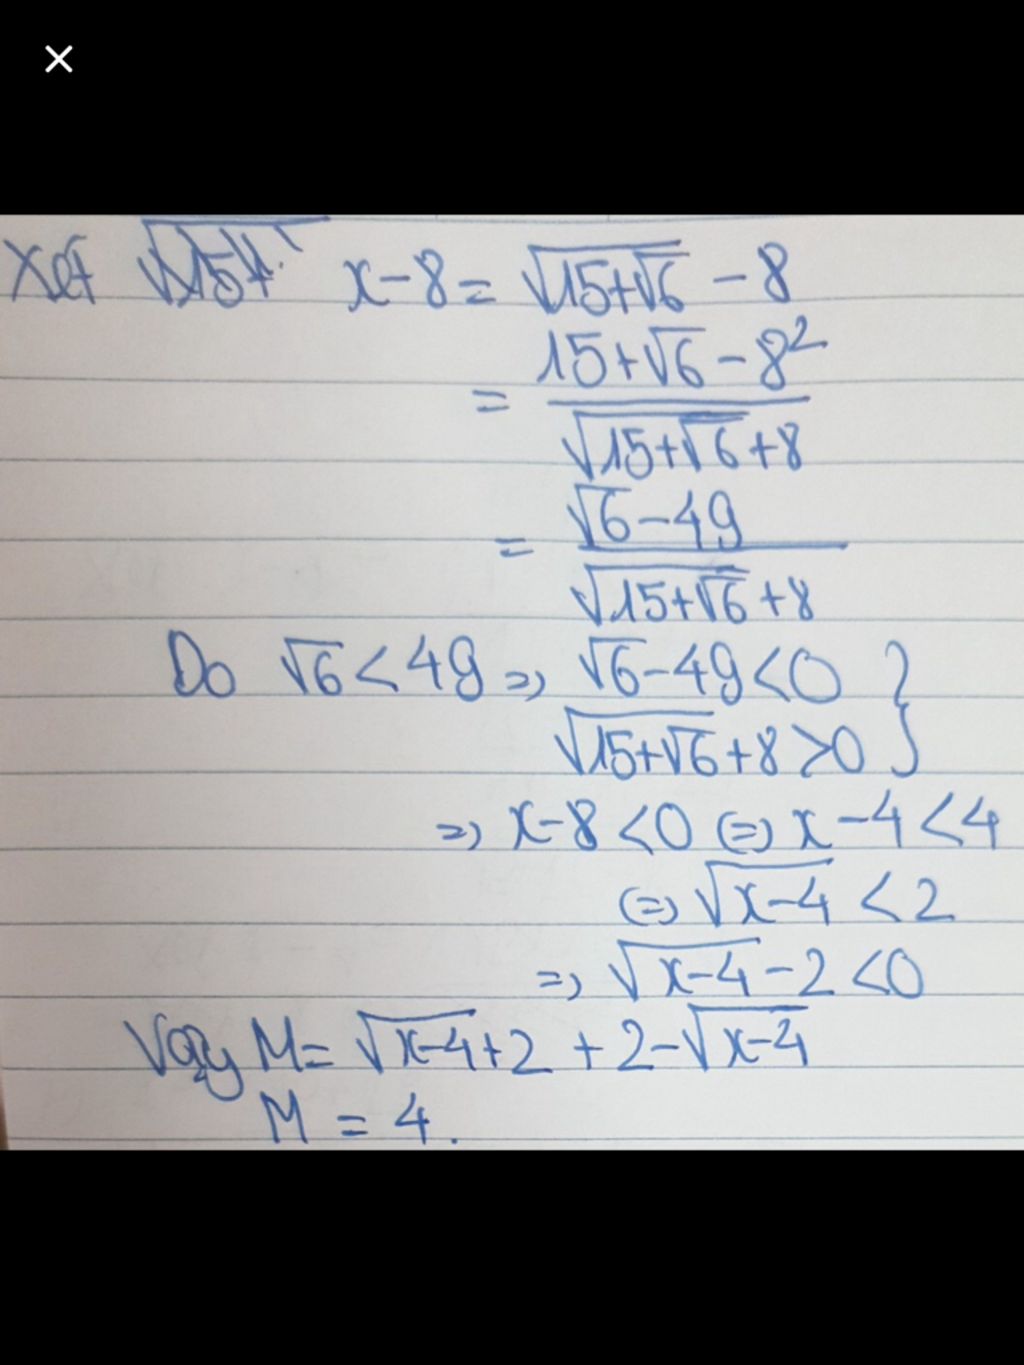 Xét x-8 = √(15+√6) - 8
= (15+√6-8²)/(√(15+√6)+8)
= (√6-49)/(√(15+√6)+8)
Do √6 < 49 => √6-49 < 0 }
√(15+√6)+8 > 0
=> x-8 < 0 (=) x-4 < 4
(=) √(x-4) < 2
=> √(x-4) - 2 < 0
Vậy M = √(x-4)+2 + 2-√(x-4)
M = 4.